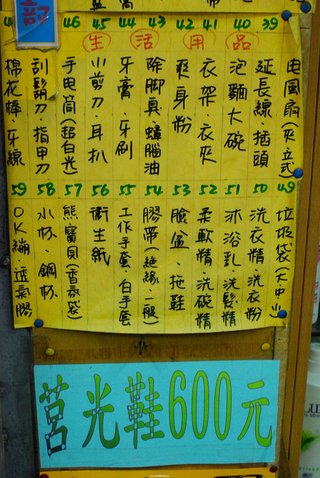 記
生活用品
電風扇(夾立式)
39 延長線.插頭
40 泡麵大碗
41 衣架.衣夾
42 爽身粉
43 除腳臭.蟑腦油
44 牙膏.牙刷
45 小剪刀.耳扒
46 手電筒(超白光)
刮鬍刀.指甲刀
棉花棒.牙線
49 垃圾袋(大中小)
50 洗衣精.洗衣粉
51 沐浴乳.洗髮精
52 柔軟精.洗碗精
53 臉盆.拖鞋
54 膠帶(絕緣.一般)
55 工作手套.白手套
56 衛生紙
57 熊寶貝(香氛袋)
58 水杯.鋼杯
59 OK繃.透氣膠
莒光鞋600元